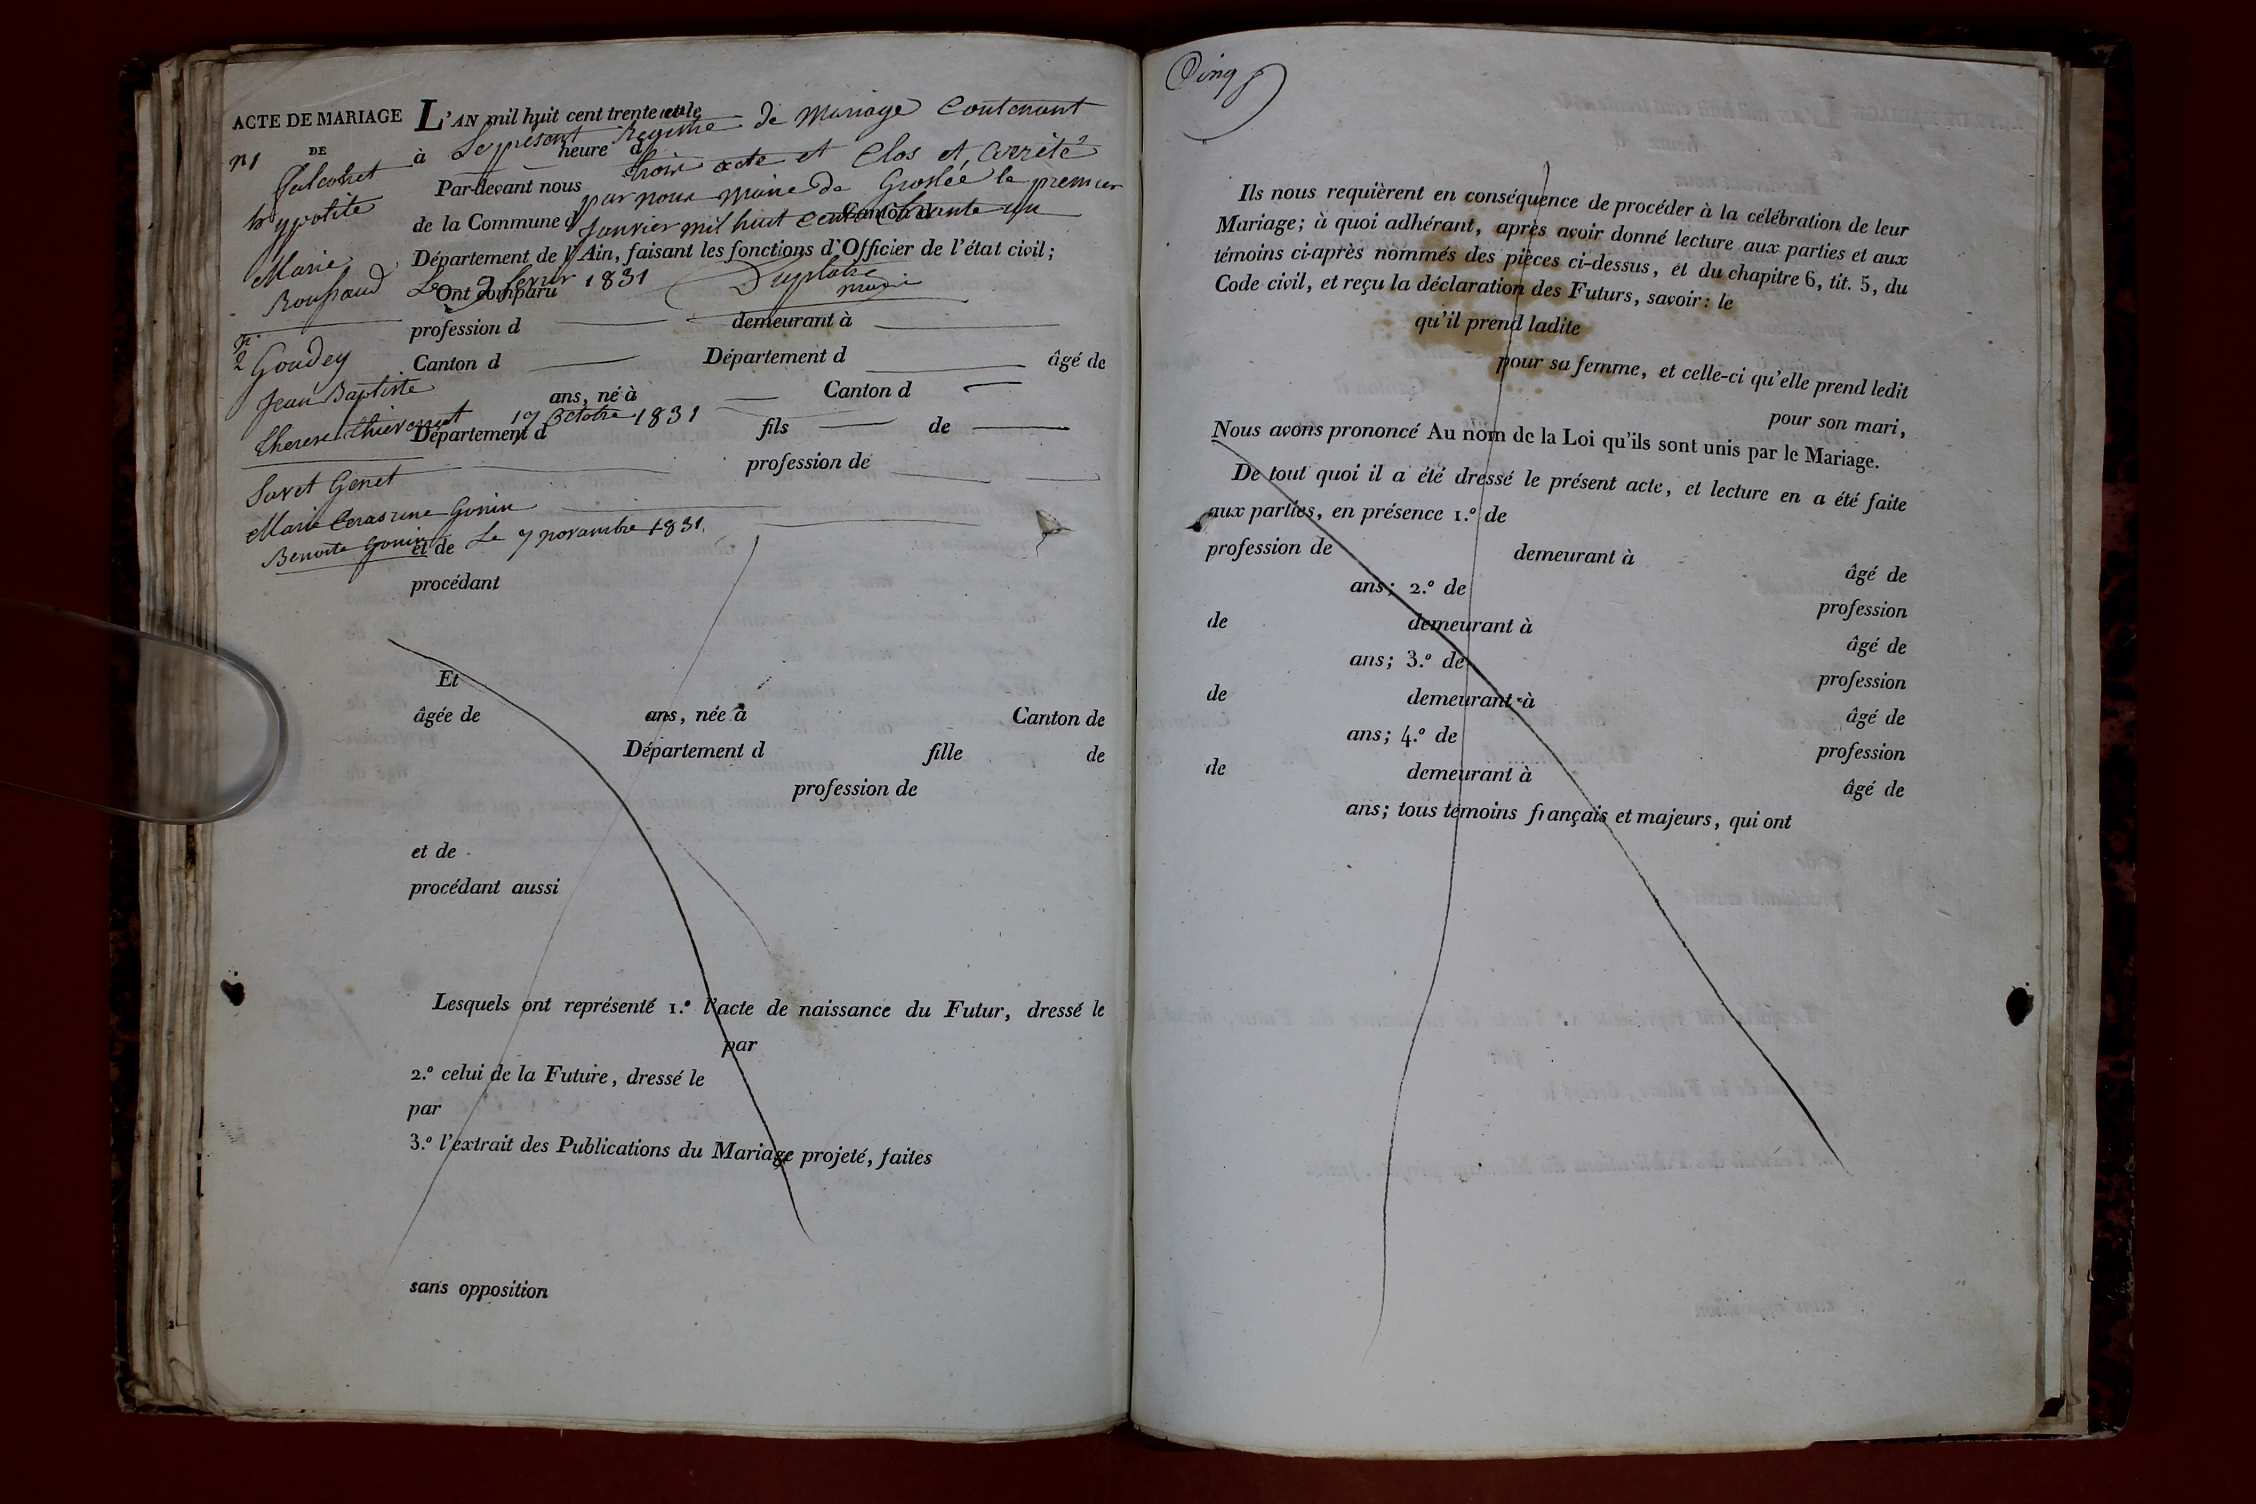 ACTE DE MARIAGE
DE
n 1
hypolite
Marie
Roupaud
n.
2 Goudey
Jean Baptiste
therese
Savet Genet
Marie Gonin
Benoite Gonin
L'AN mil huit cent trente et le
Le présent Registre de mariage Contenant
à heure d
trois acte et Clos et Arrêté
Par-devant nous
par nous maire de Groslée le premier
de la Commune d Canton d
Janvier mil huit Cent trente un
Département de l'Ain, faisant les fonctions d'Officier de l'état civil;
Duplatre
maire
Ont comparu
Le 9 fevrier 1831
profession d demeurant à
Canton d Département d âgé de
ans, né à Canton d
17 octobre 1831
Département d fils de
profession de
et de Le 7 novambre 1831.
procédant
Et
âgée de ans, née à Canton de
Département d fille de
profession de
et de
procédant aussi
Lesquels ont représenté 1.º l'acte de naissance du Futur, dressé le
par
2.º celui de la Future, dressé le
par
3.º l'extrait des Publications du Mariage projeté, faites
sans opposition
Cinq
Ils nous requièrent en conséquence de procéder à la célébration de leur
Mariage; à quoi adhérant, après avoir donné lecture aux parties et aux
témoins ci-après nommés des pièces ci-dessus, et du chapitre 6, tit. 5, du
Code civil, et reçu la déclaration des Futurs, savoir: le
qu'il prend ladite
pour sa femme, et celle-ci qu'elle prend ledit
pour son mari,
Nous avons prononcé Au nom de la Loi qu'ils sont unis par le Mariage.
De tout quoi il a été dressé le présent acte, et lecture en a été faite
aux parties, en présence 1.º de
profession de demeurant à âgé de
ans; 2.º de profession
de demeurant à âgé de
ans; 3.º de profession
de demeurant à âgé de
ans; 4.º de profession
de demeurant à âgé de
ans; tous témoins français et majeurs, qui ont